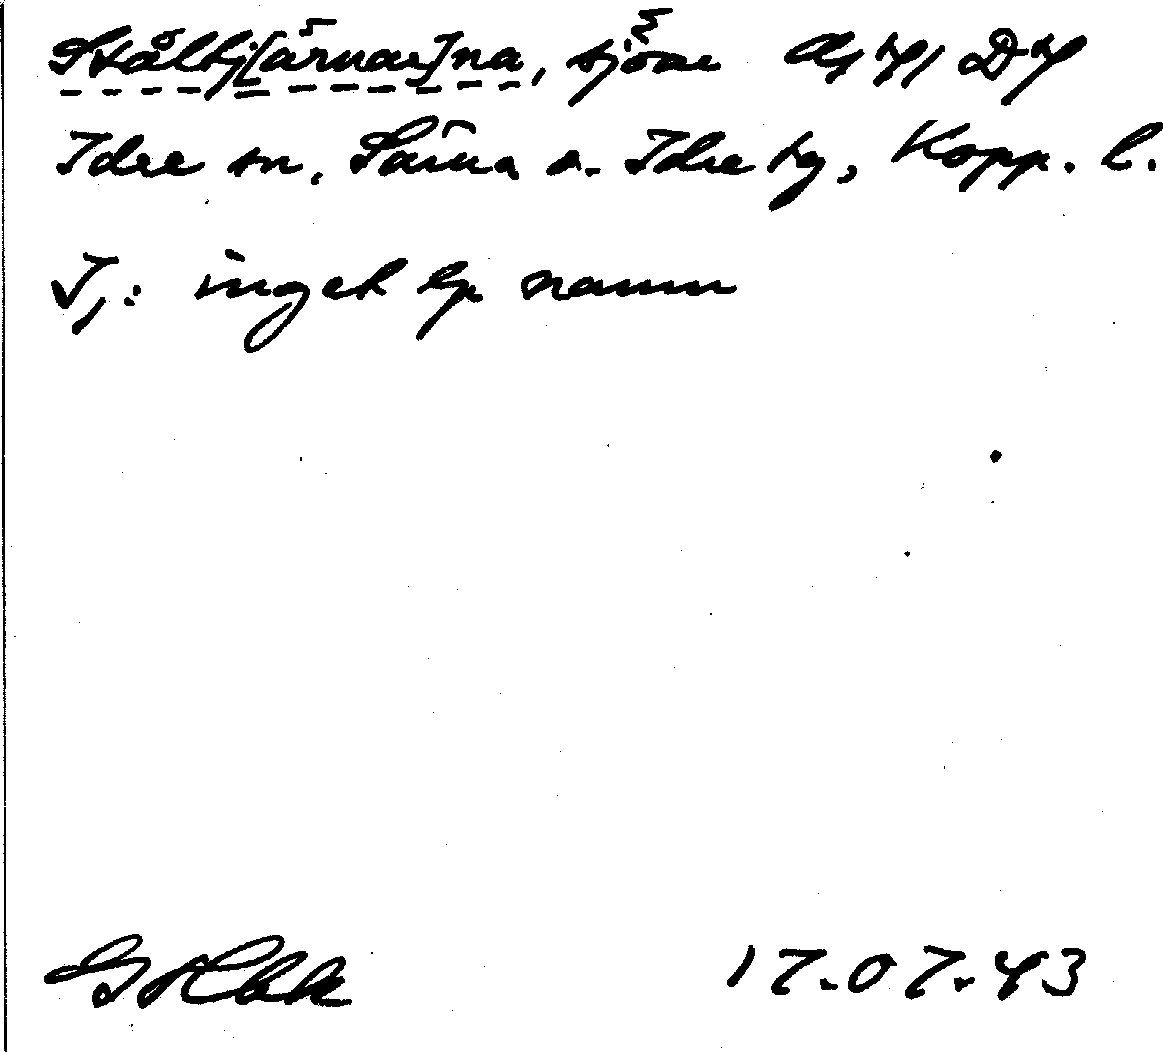 Ståltj[ärnar]na, sjöar
Idre sn, Särna o. Idre tg, Kopp. l.
J,: inget lp namn
17.07.43